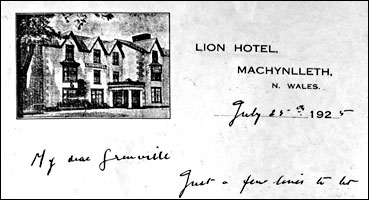 LION HOTEL,
MACHYNLLETH,
N. WALES.
July 25th 1925
My dear Grenville
Just a few lines to